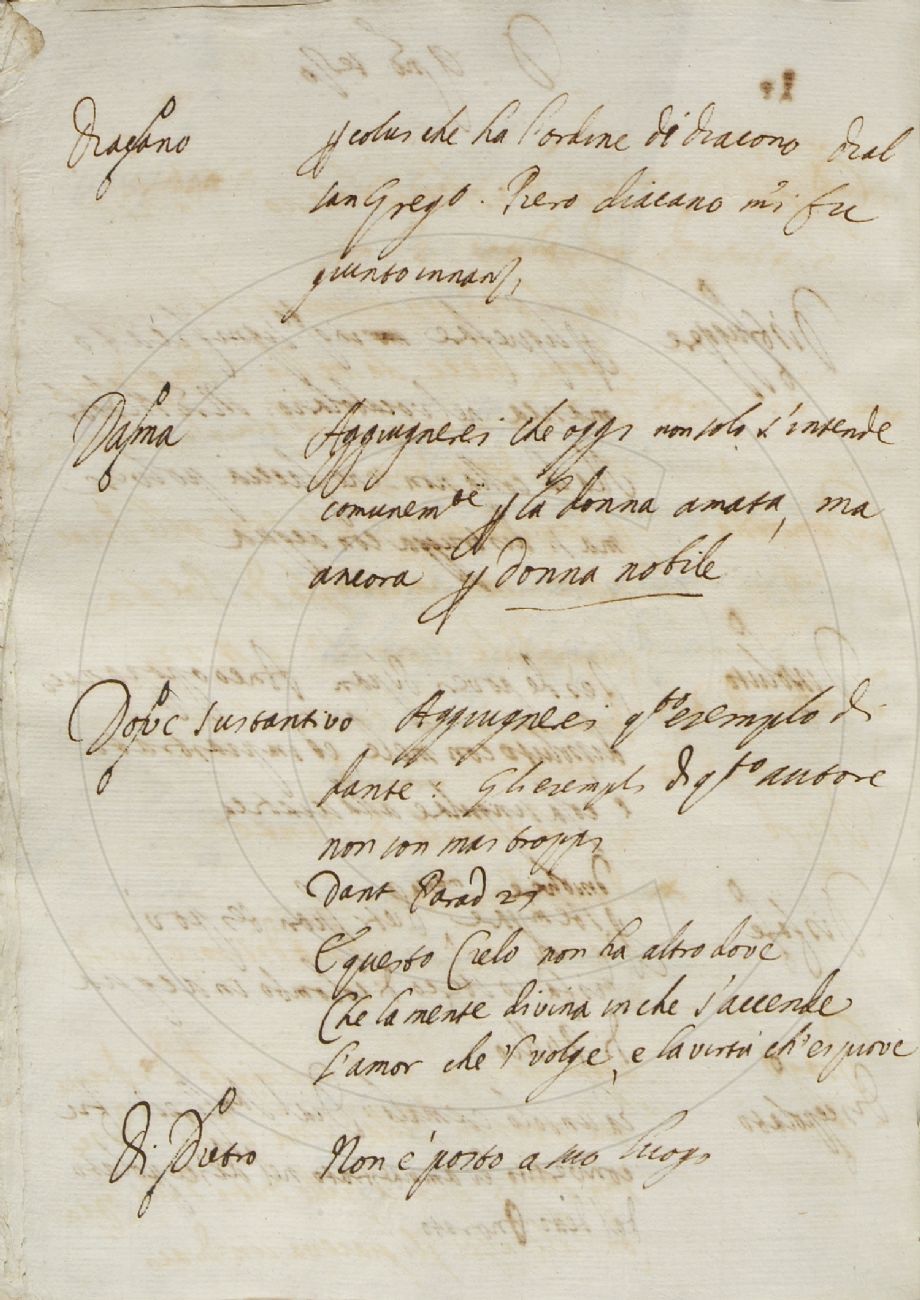 Diacano p colui che ha l'ordine di diacono Dial
san Greg.º Piero diacano mi fu
giunto innanzi
Dama Aggiugnerei che oggi non solo s'intende
comunem.te p la donna amata, ma
ancora p donna nobile
Dove sustantivo Aggiugnerei q.to esempio di
dante: Gli esempli di q.to autore
non son mai troppi
Dant Parad 27
E questo Cielo non ha altro dove
Che la mente divina in che s'accende
L'amor che 'l volge, e la virtù ch'ei piove
Di Dietro Non è posto a suo luogo